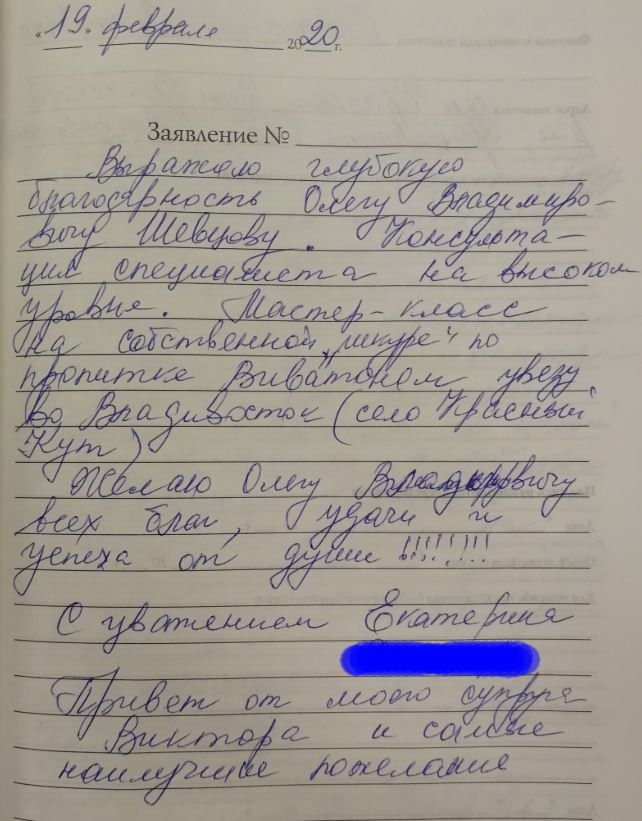 "19" февраля 2020 г.
Заявление №
Выражаю глубокую
благодарность Олегу Владимиро-
вичу Шевцову. Консульта-
ция специалиста на высоком
уровне. Мастер-класс
на собственной "шкуре" по
пропитке Виватоном увезу
во Владивосток (село Красный
Кут)
Желаю Олегу Владимировичу
всех благ, удачи и
успеха от души !!!!!!!!
С уважением Екатерина
Привет от моего супруга
Виктора и самые
наилучшие пожелания